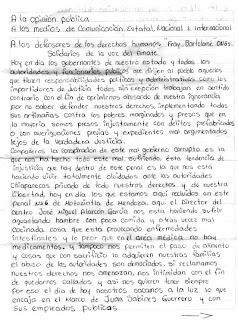 A la opinión publica
A los medios de Comunicación Estatal, Nacional e internacional
A los defensores de los derechos humanos Fray. Bartolomé ONGs
Solidarios de la voz del Amate.
Hoy en dia los gobernantes de nuestro estado y todas las
autoridades y funcionarios públicos se dirigen al pueblo aquellos
que tienen responsabilidades políticas y administrativas como los
impartidores de Justicia todos sin excepción trabajan en sentido
contrario con el fin de oprimirnos abusando de nuestra ignorancia
por no saber defender nuestros derechos, implementando todas
sus artimañas contra los pobres, marginados y presos que en
la mayoria somos presos injustamente con delitos prefabricados
o con averiguaciones previas y expedientes mal argumentados
lejos de la verdadera Justicia.
Compañeros la corrupción de este mal gobierno corrupto, es la
que nos ha hecho todo este mal, sufriendo, esta tendencia de
injusticia que hoy dentro de este penal es lo que nos está
haciendo vivir totalmente olvidados ante las autoridades
chiapanecas privado de todo nuestros derechos, y de nuestra
libertad, hoy en dia los que estamos aquí recluidos en este
penal No6 de Motozintla de Mendoza, aquí el Director del
centro José Miguel Alarcón García nos esta haciendo sufrir
aguantando hambre con poca comida y otras veces mal
cocinada, cosa que esta provocando enfermedades
intestinales y lo peor que en el area médica no hay
medicamentos, y tampoco nos permiten el paso de alimento
y cosas que con sacrificio lo adquieren nuestras familias
el abuso de las autoridades son denunciados, si reclamamos
nuestros derechos nos amenazan, nos intimidan con el fin
de quedarnos callados, y así nos quieren tener siempre
Por eso el dia de hoy nosotros sacamos a la luz lo que
encaja en el Marco de Juan Sabines Guerrero y con
sus empleados, publicos